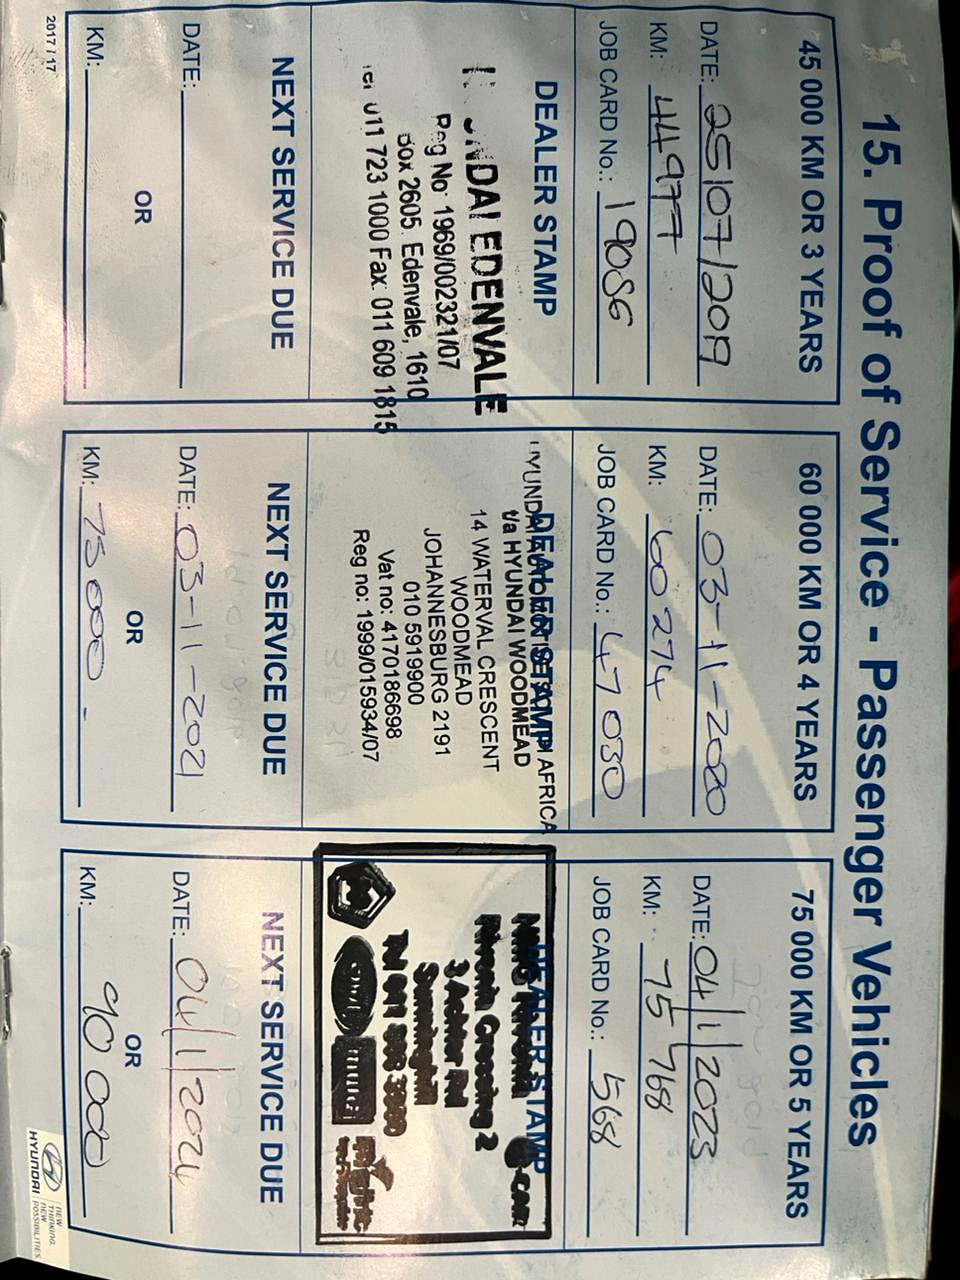 15. Proof of Service - Passenger Vehicles
45 000 KM OR 3 YEARS
DATE: 25/07/2019
KM: 44977
JOB CARD No.: 19086
DEALER STAMP
EDENVALE
Reg No: 1969/002321/07
Box 2605 Edenvale, 1610
011 723 1000 Fax: 011 609 1815
NEXT SERVICE DUE
DATE:
OR
KM:
2017 / 17
60 000 KM OR 4 YEARS
DATE: 03-11-2020
KM: 60274
JOB CARD No.: 47030
DEALER STAMP
AFRICA
t/a HYUNDAI WOODMEAD
14 WATERVAL CRESCENT
WOODMEAD
JOHANNESBURG 2191
010 5919900
Vat no: 4170186698
Reg no: 1999/015934/07
NEXT SERVICE DUE
DATE: 03-11-2021
OR
KM: 75000.
75 000 KM OR 5 YEARS
DATE: 04/1/2023
KM: 75768
JOB CARD No.: 568
DEALER STAMP
Rivonia Crossing 2
3 Achter Rd
Sunninghill
Tel 011
NEXT SERVICE DUE
DATE: 04/1/2024
OR
KM: 90 000
HYUNDAI
NEW
THINKING.
NEW
POSSIBILITIES.